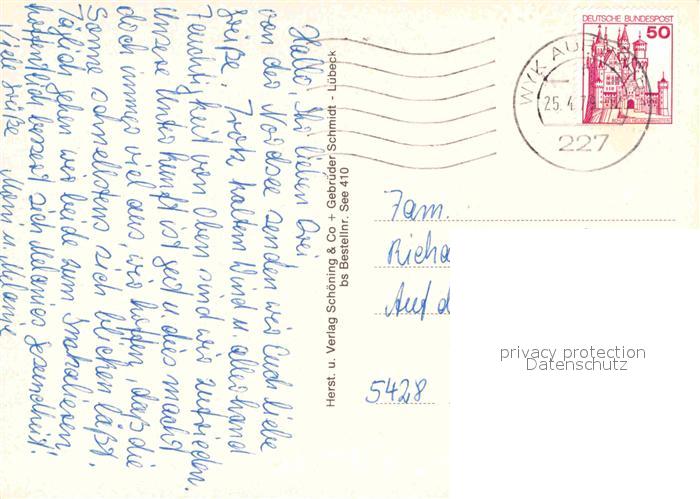 Hallo Ihr lieben Drei
von der Nordsee senden wir Euch liebe
Grüße. Trotz kalten Wind u. allerhand
Feuchtigkeit von Oben sind wir zufrieden.
Unsere Unterkunft ist gut u. dies macht
doch immer viel aus, wir hoffen, daß die
Sonne schnellstens sich blicken läßt.
Täglich gehen wir beide zum Inhalieren
hoffentlich bessert sich Melanies Gesundheit.
Viele Grüße Moni u. Melanie
Herst. u. Verlag Schöning & Co + Gebrüder Schmidt - Lübeck
bs Bestellnr. See 410
DEUTSCHE BUNDESPOST
50
WYK AUF
25.4.79
227
Fam.
Richa
Auf d
5428
privacy protection
Datenschutz